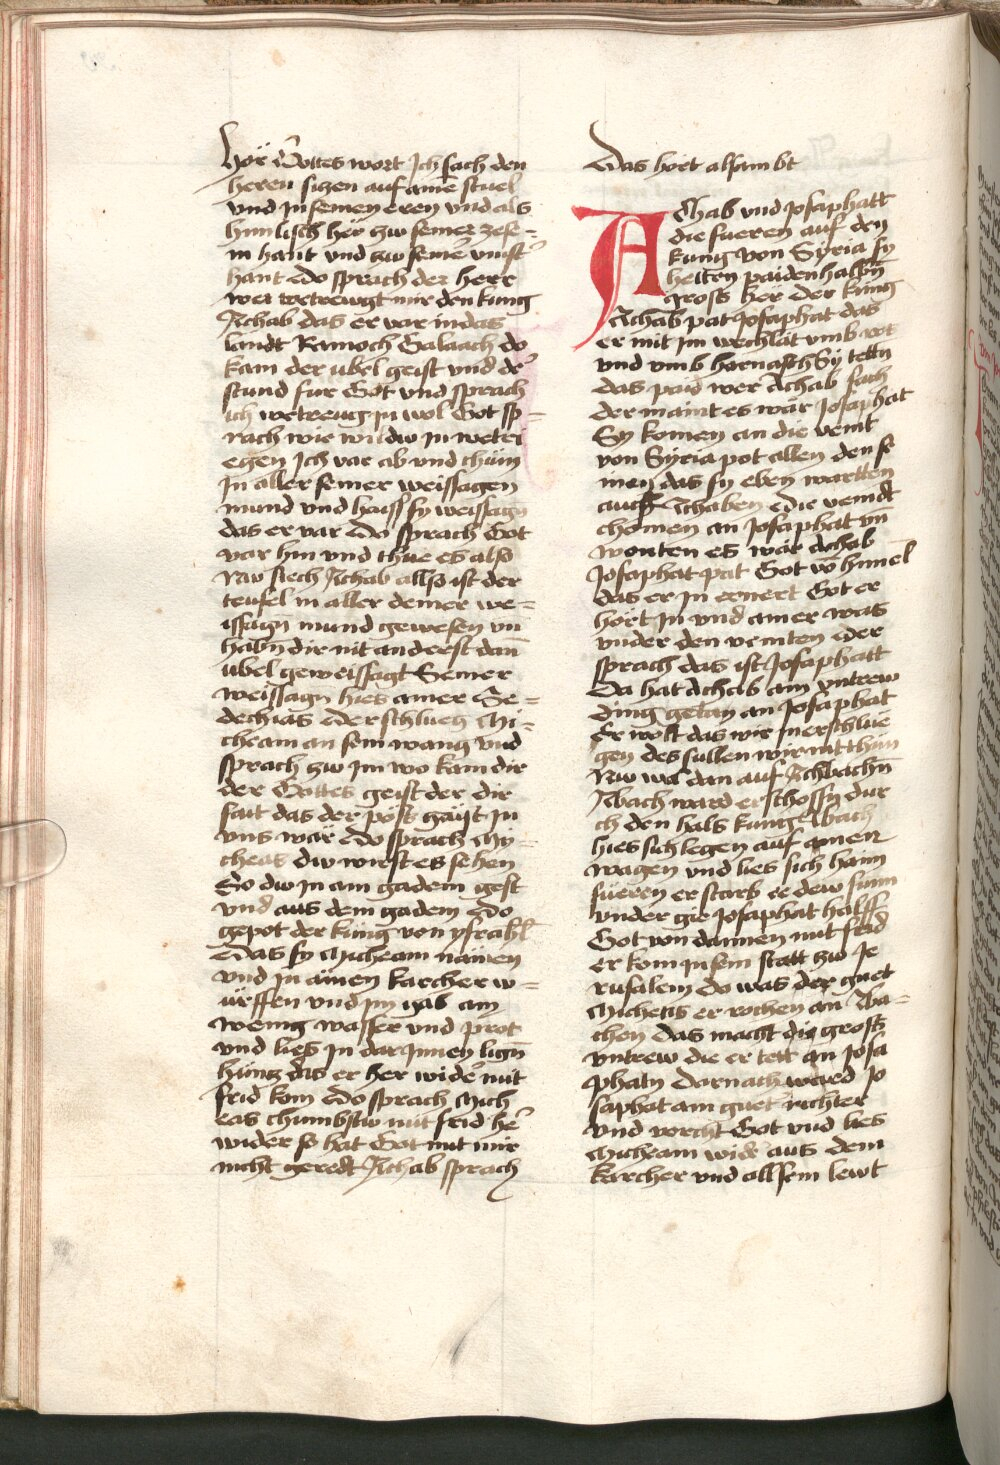 hör Gottes wort Ich sach den
heren siczen auf aine stuel
vnd in seinen eren vnd als
himlisch hör zw seiner zese=
m hant vnd zw seine vinst
hant Do sprach der herr
wer wetrewgt mir den kung
Achab das er var in das
landt Ramoch Galaach do
kam der ubel geist vnd der
stund fur Got vnd sprach
ich wetreug in wol Got sp=
rach wie wildw in wetri
egen Ich var ab vnd chüm
In aller seiner weissagen
mund vnd haiss sy weissagn
das er var Do sprach Got
var hin vnd thue es also
Nw siech Achab allso ist der
teufel in aller deiner we=
issagn mund gewesen vn
habn dir nit anderst dan
ubel geweissagt Seiner
weissagn hies ainer Se=
dechias Der schlueg Mi=
cheam an sein wang vnd
sprach zw im wo kam dir
der Gottes geist der dir
sait das der pöss gaist in
vns wär Do sprach My=
cheas diw wirst es sehen
So dw in ain gadem gest
vnd aus dem gadem Do
gepot der küng von ysrahl
Das sy Micheam nämen
vnd in ainen karcher w=
urffen vnd im gab ain
wenig wasser vnd prot
vnd lies in dar Innen lign
hüng das er her wider mit
frid kom Do sprach Mich
eas chumbstw mit frid he
wider so hat Got mit mir
nicht geredt Achab sprach
Das hört alsambt
AChab vnd Josaphatt
die fueren auf den
kung von Syria sy
hetten paidenhalbn
gross her der küng
Achab pat Josaphat das
er mit im wechslät vmb ros
vnd vmb harnasch Sy tettn
das paid wer Achab sach
der maint es wär Josaphat
Sy komen an die veint
von Syria pot allen den se
men das sy eben wartten
auff Achaben Die veindt
chomen an Josaphat vn
wonten es wär Achab
Josaphat pat Got vo himel
das er in ernert Got er
hört in vnd ainer was
vnder den veinten Der
sprach das ist Josaphatt
Da hat Achab ain vntrew
ding getan an Josaphat
Er wolt das wir in erschlue
gen des sullen wir nit thun
Nw wa dan auf Achbachn
Abach ward erschossn dur
ch den hals kunge Abach
hies sich legen auf ainen
wagen vnd lies sich haim
füeren er starb ee dew sunn
vnder gie Josaphat halff
Got von dannen mit frid
er kom in sein statt zw Je
rusalem Do was der guet
Micheas er rochen an Aba=
chen Das macht die gross
vntrew die er tett an Josa
phatn Darnach ward Jo
saphat ain guet richter
vnd vorcht Got vnd lies
Micheam wider aus dem
karcher vnd all sein lewt